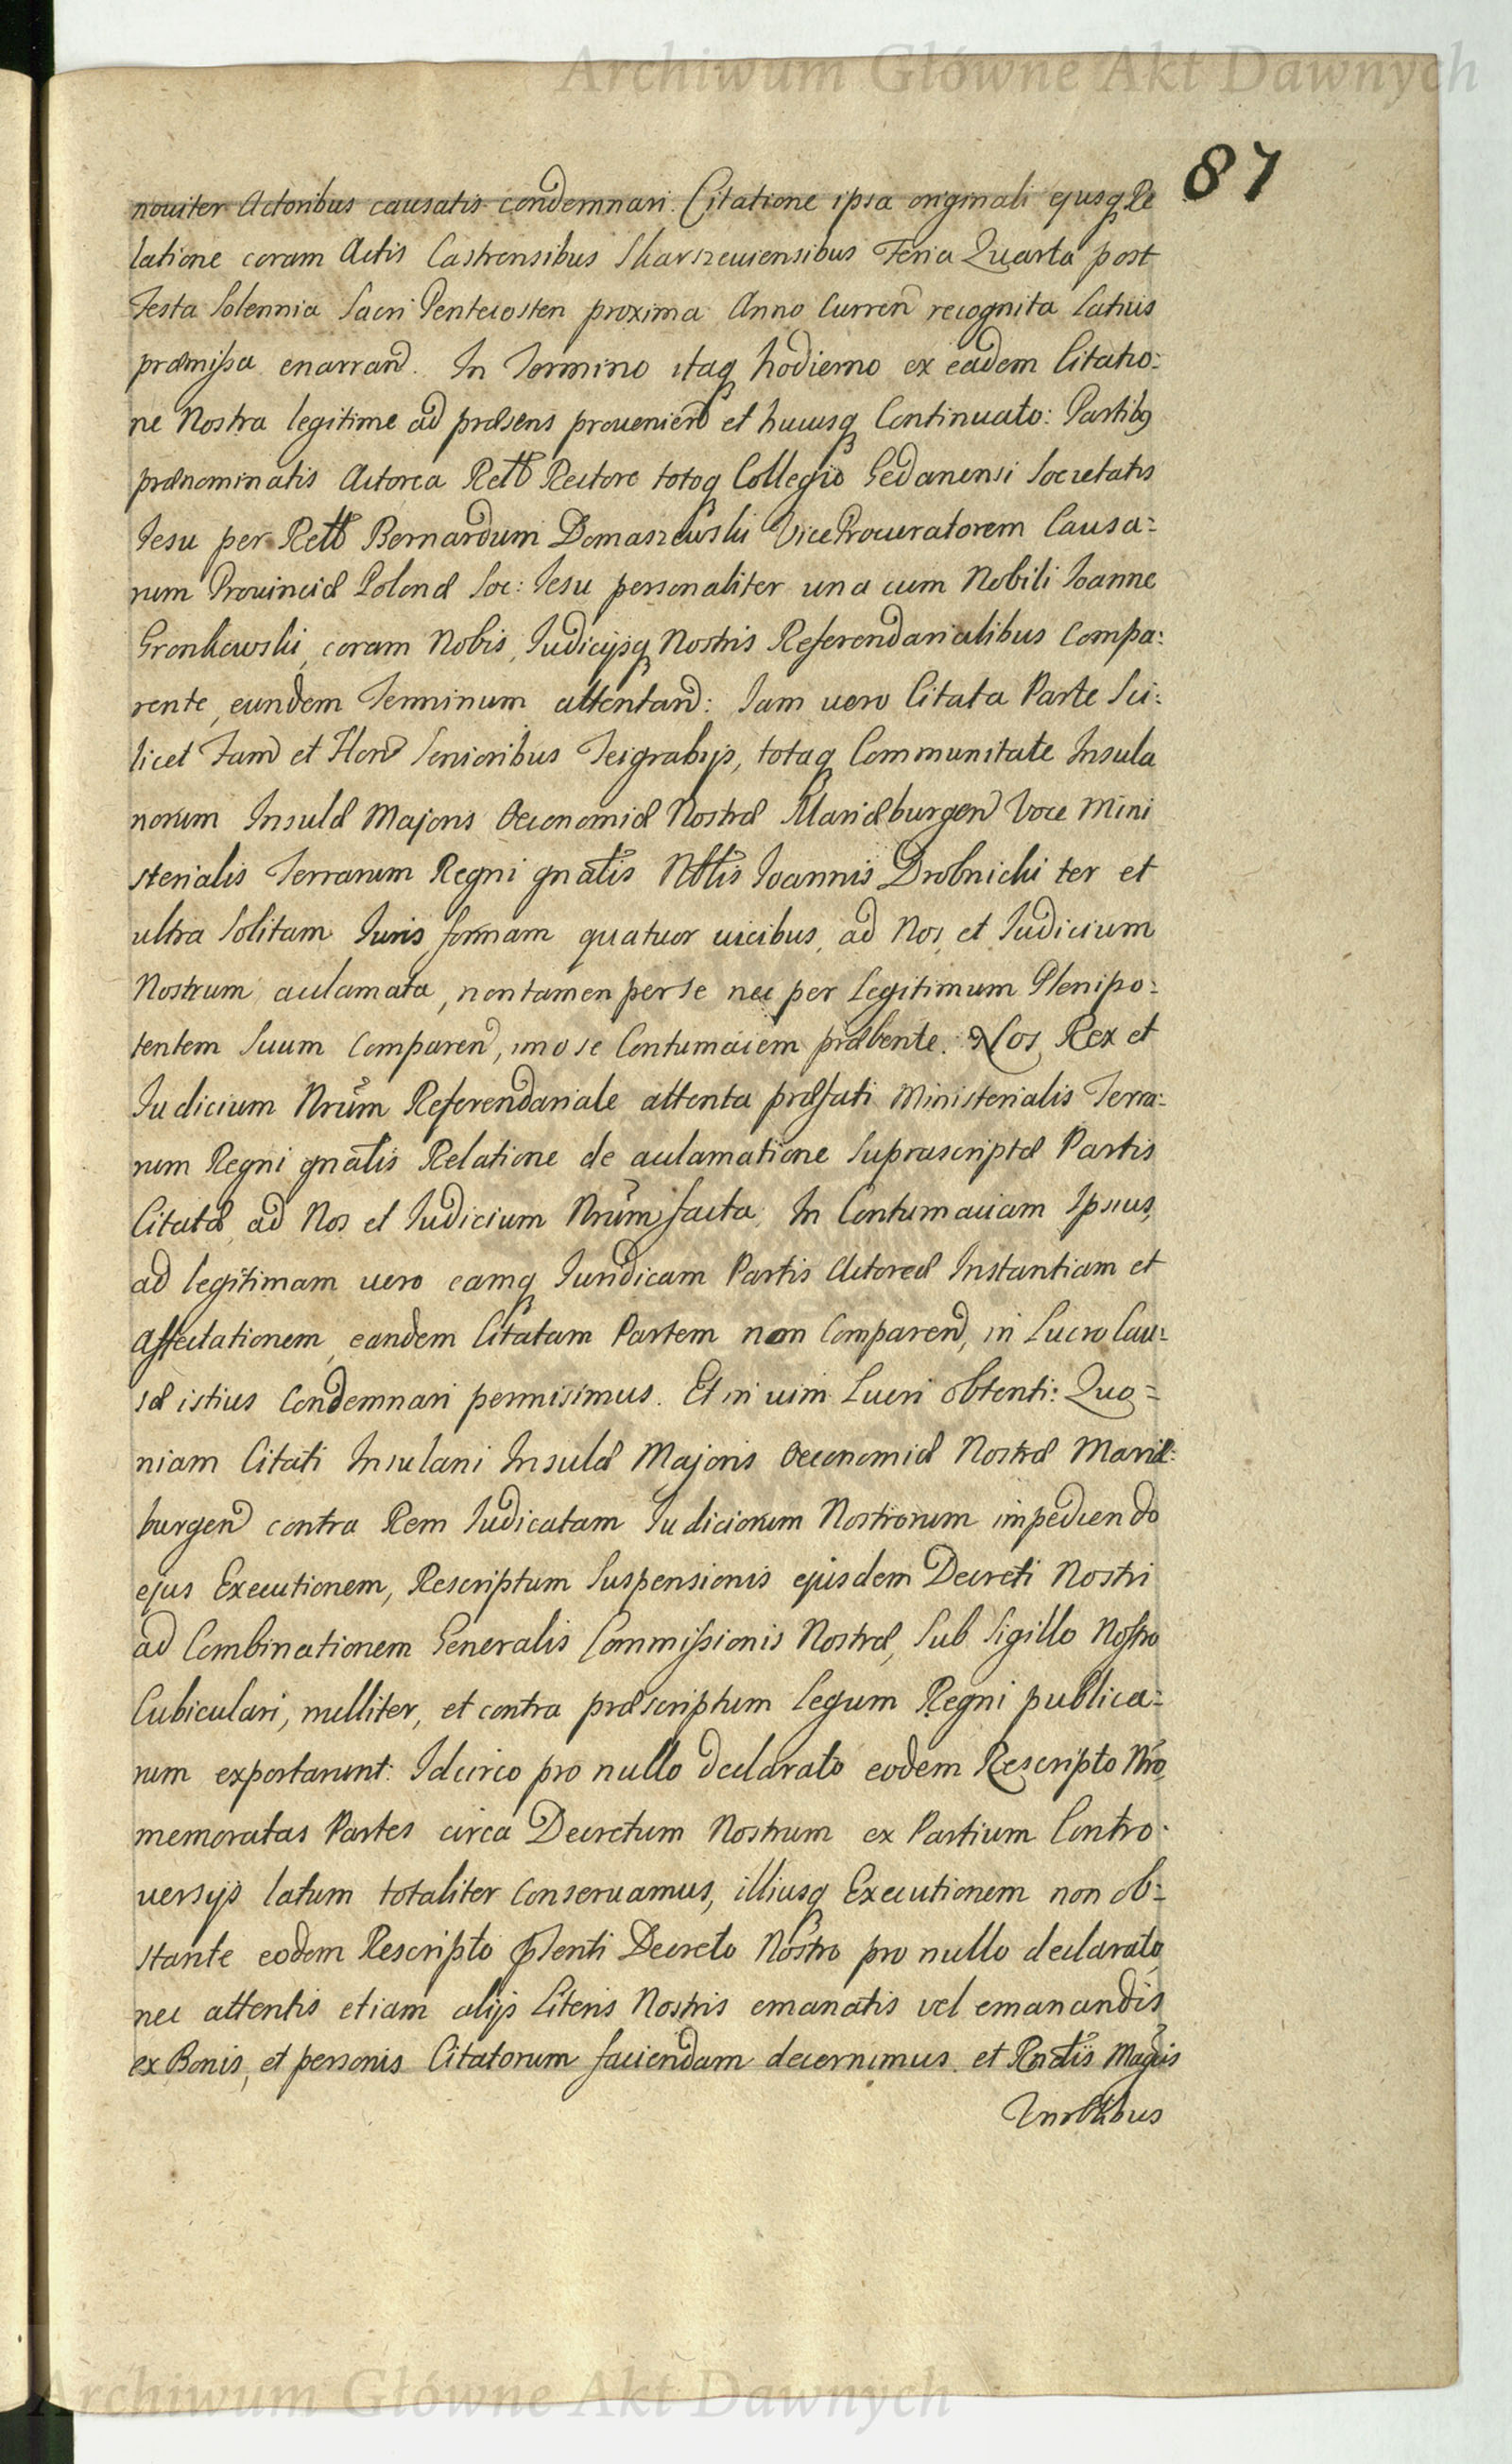 Archiwum Główne Akt Dawnych
87
noviter Actoribus causatis condemnari. Citatione ipsa originali ejusq Re
latione coram Actis Castrensibus Skarszeviensibus Feria Quarta post
Festa Solennia Sacri Pentecosten proxima Anno Curren recognita Latius
præmissa enarrand. In Termino itaq hodierno ex eadem Citatio:
ne Nostra legitime ad præsens provenien et hucusq Continuato: Partibq
prænominatis Actorea Rello Rectore totoq Collegio Gedanensi Societatis
Jesu per Rell Bernardum Domaszewski ViceProcuratorem Causa:
rum Provinciæ Polonæ Soc: Jesu personaliter una cum Nobili Joanne
Gronkowski, coram Nobis, Judicijsq Nostris Referendarialibus Compa:
rente, eundem Terminum attentand: Jam vero Citata Parte Sci:
licet Fam et Hon Senioribus Teigrabijs, totaq Communitate Insula
norum Insulæ Majoris Oeconomiæ Nostræ Mariæburgen Voce Mini
sterialis Terrarum Regni gnalis Nblis Joannis Drobnicki ter et
ultra Solitam Juris formam quatuor vicibus, ad Nos, et Judicium
Nostrum acclamata, non tamen per se nec per Legitimum Plenipo:
tentem Suum Comparen, imo se Contumacem præbente. Nos Rex et
Judicium Nrum Referendariale attenta præfati Ministerialis Terra:
rum Regni gnalis Relatione de acclamatione Suprascriptæ Partis
Citatæ, ad Nos et Judicium Nrum facta, In Contumaciam Ipsius,
ad legitimam vero eamq Juridicam Partis Actoreæ Instantiam et
Affectationem, eandem Citatam Partem non Comparen, in Lucro Cau:
sæ istius Condemnari permisimus. Et in vim Lucri obtenti: Quo=
niam Citati Insulani Insulæ Majoris Oeconomiæ Nostræ Mariæ:
burgen contra Rem Judicatam Judiciorum Nostrorum impediendo
ejus Executionem, Rescriptum Suspensionis ejusdem Decreti Nostri
ad Combinationem Generalis Commissionis Nostræ, Sub Sigillo Nostro
Cubiculari, nulliter, et contra præscriptum Legum Regni publica=
rum exportarunt: Idcirco pro nullo declarato eodem Rescripto Nro,
memoratas Partes circa Decretum Nostrum ex Partium Contro:
versijs latum totaliter conservamus, illiusq Executionem non ob:
stante eodem Rescripto Pnti Decreto Nostro pro nullo declarato,
nec attentis etiam alijs Literis Nostris emanatis vel emanandis
ex Bonis, et personis Citatorum faciendam decernimus et
Archiwum Główne Akt Dawnych